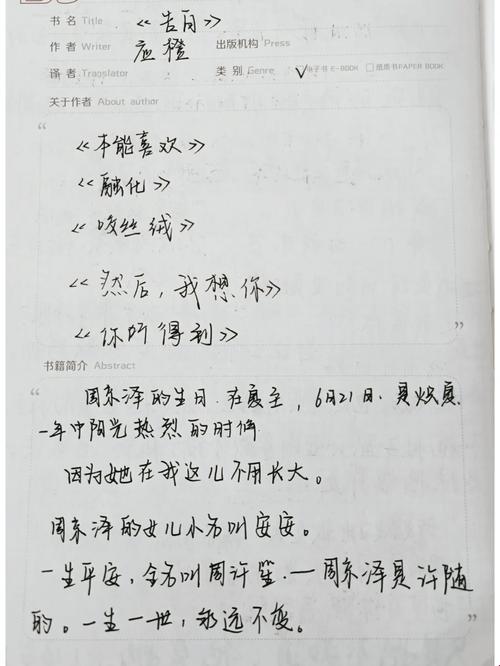 书 名 Title 《告白》
作 者 Writer 应橙 出版机构 Press
译 者 Translator 类 别 Genre √ 电子书 E-BOOK 纸质书 PAPER BOOK
关于作者 About author
《本能喜欢》
《融化》
《咬丝绒》
《然后，我想你》
《你听得到》
书籍简介 Abstract
周京泽的生日.在夏至，6月21日.是炽夏.
一年中阳光热烈的时候
因为她在我这儿不用长大。
周京泽的女儿小名叫安安。
一生平安，全名叫周许笙.——周京泽是许随
的。一生一世，永远不变。